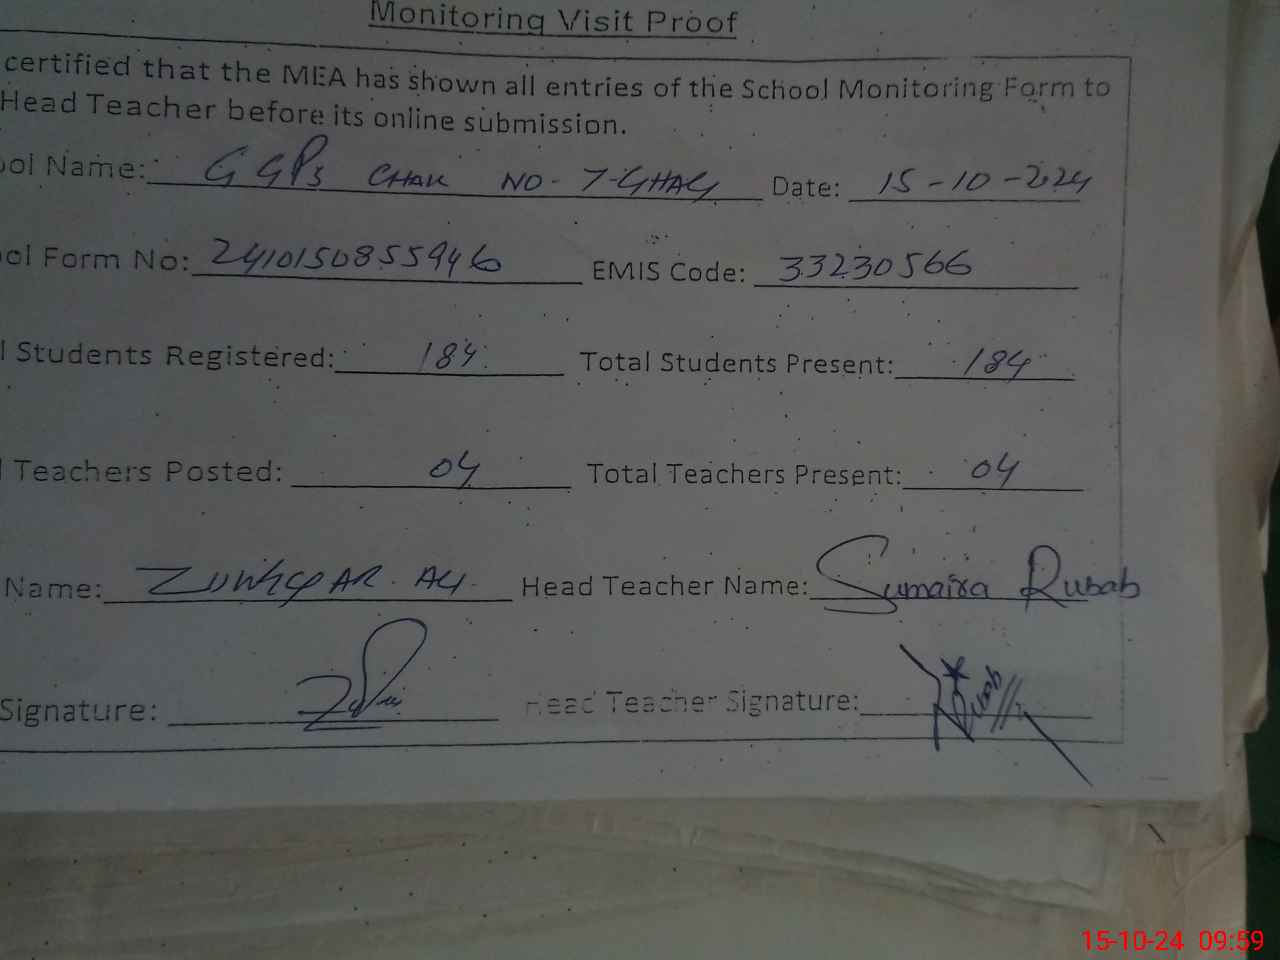 Monitoring Visit Proof
certified that the MEA has shown all entries of the School Monitoring Form to
Head Teacher before its online submission.
ool Name: GGPS CHAK NO-7-GHAG Date: 15-10-2024
ol Form No: 2410150855946 EMIS Code: 33230566
l Students Registered: 184 Total Students Present: 184
l Teachers Posted: 04 Total Teachers Present: 04
Name: ALI Head Teacher Name: Sumaira Rubab
Signature: Head Teacher Signature:
15-10-24 09:59